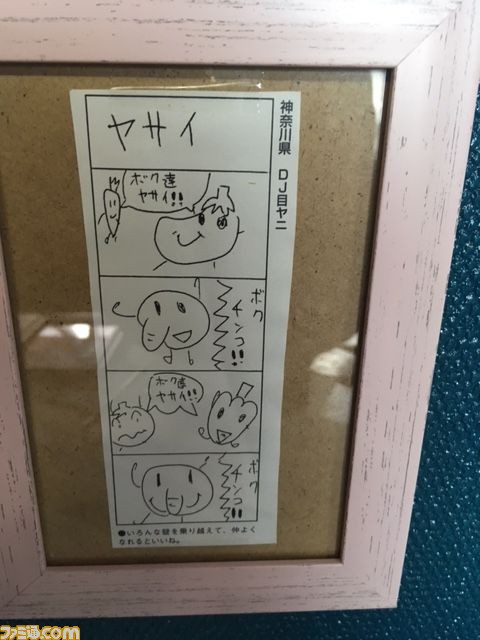 神奈川県 DJ目ヤニ
ヤサイ
ボク達
ヤサイ!!
ボク
チンコ!!
ボク達
ヤサイ!!
ボク
チンコ!!
●いろんな壁を乗り越えて、仲よく
なれるといいね。
ファミ通.com